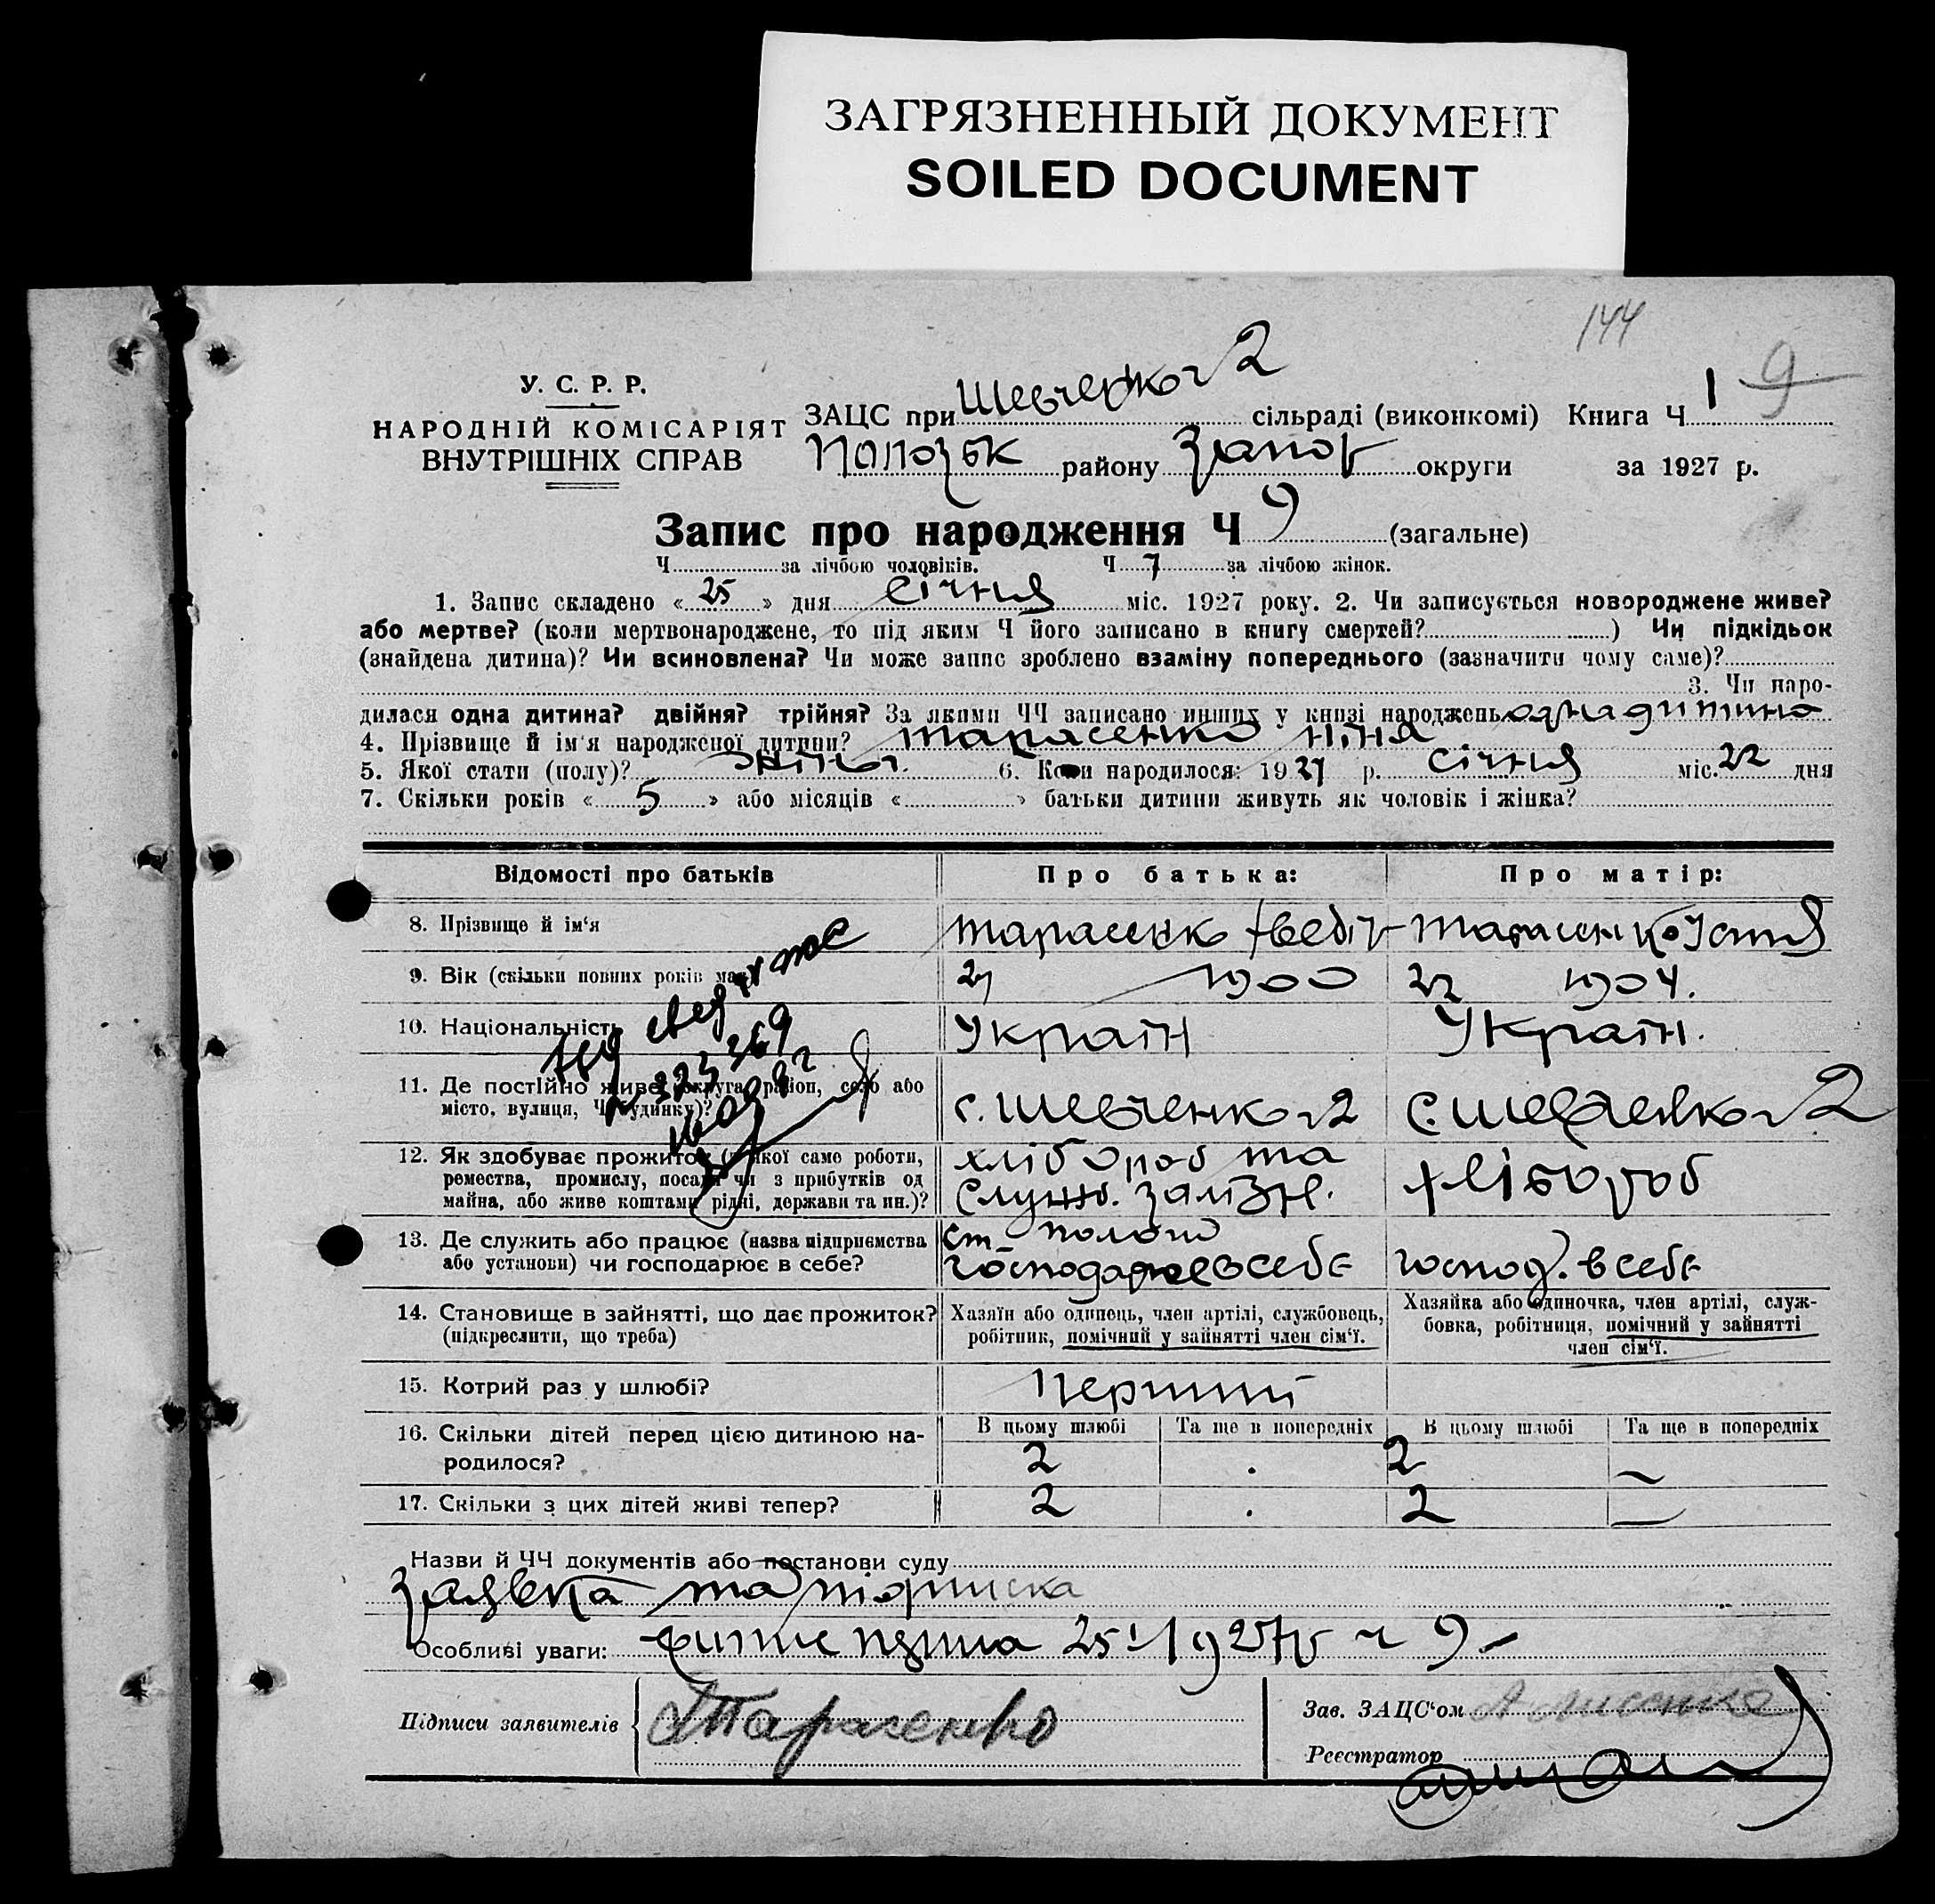 ЗАГРЯЗНЕННЫЙ ДОКУМЕНТ
SOILED DOCUMENT
144
У. С. Р. Р.
НАРОДНІЙ КОМІСАРІЯТ
ВНУТРІШНІХ СПРАВ
ЗАЦС при Шевченко №2 сільраді (виконкомі) Книга Ч 1 9
Пологськ району Запор округи за 1927 р.
Запис про народження Ч 9 (загальне)
Ч за лічбою чоловіків. Ч 7 за лічбою жінок.
1. Запис складено « 25 » дня січня міс. 1927 року. 2. Чи записується новороджене живе?
або мертве? (коли мертвонароджене, то під яким Ч його записано в книгу смертей? ) Чи підкідьок
(знайдена дитина)? Чи всиновлена? Чи може запис зроблено взаміну попереднього (зазначити чому саме)?
3. Чи наро-
дилася одна дитина? двійня? трійня? За якими ЧЧ записано инших у книзі народжень одна дитина
4. Прізвище й ім'я народженої дитини? Тарасенко Ніна
5. Якої стати (полу)? жіноч. 6. Коли народилося: 1927 р. січня міс. 22 дня
7. Скільки років « 5 » або місяців « » батьки дитини живуть як чоловік і жінка?
Відомості про батьків Про батька: Про матір:
8. Прізвище й ім'я Тарасенко Тарасенко Устя
9. Вік (скільки повних років має) 27 1900 22 1904.
10. Національність Україн Україн.
11. Де постійно живе (округа, район, село або
місто, вулиця, Ч будинку)? с. Шевченко №2 с. Шевченко №2
12. Як здобуває прожиток (з якої само роботи,
ремества, промислу, посади чи з прибутків од
майна, або живе коштами рідні, держави та ин.)? хлібороб та
служб. залізн. хлібороб
13. Де служить або працює (назва підприємства
або установи) чи господарює в себе? ст Пологи
господарює в себе господ. в себе
14. Становище в зайнятті, що дає прожиток?
(підкреслити, що треба)
Хазяїн або одинець, член артілі, службовець,
робітник, помічний у зайнятті член сім'ї.
Хазяйка або одиночка, член артілі, служ-
бовка, робітниця, помічний у зайнятті
член сім'ї.
15. Котрий раз у шлюбі? Перший
16. Скільки дітей перед цією дитиною на-
родилося?
В цьому шлюбі Та ще в попередніх В цьому шлюбі Та ще в попередніх
2 . 2 –
17. Скільки з цих дітей живі тепер? 2 . 2 –
Назви й ЧЧ документів або постанови суду
заявка та підписка
Особливі уваги: 25/I 1927 р ч 9.–
Підписи заявителів Тарасенко
Зав. ЗАЦС'ом
Реєстратор